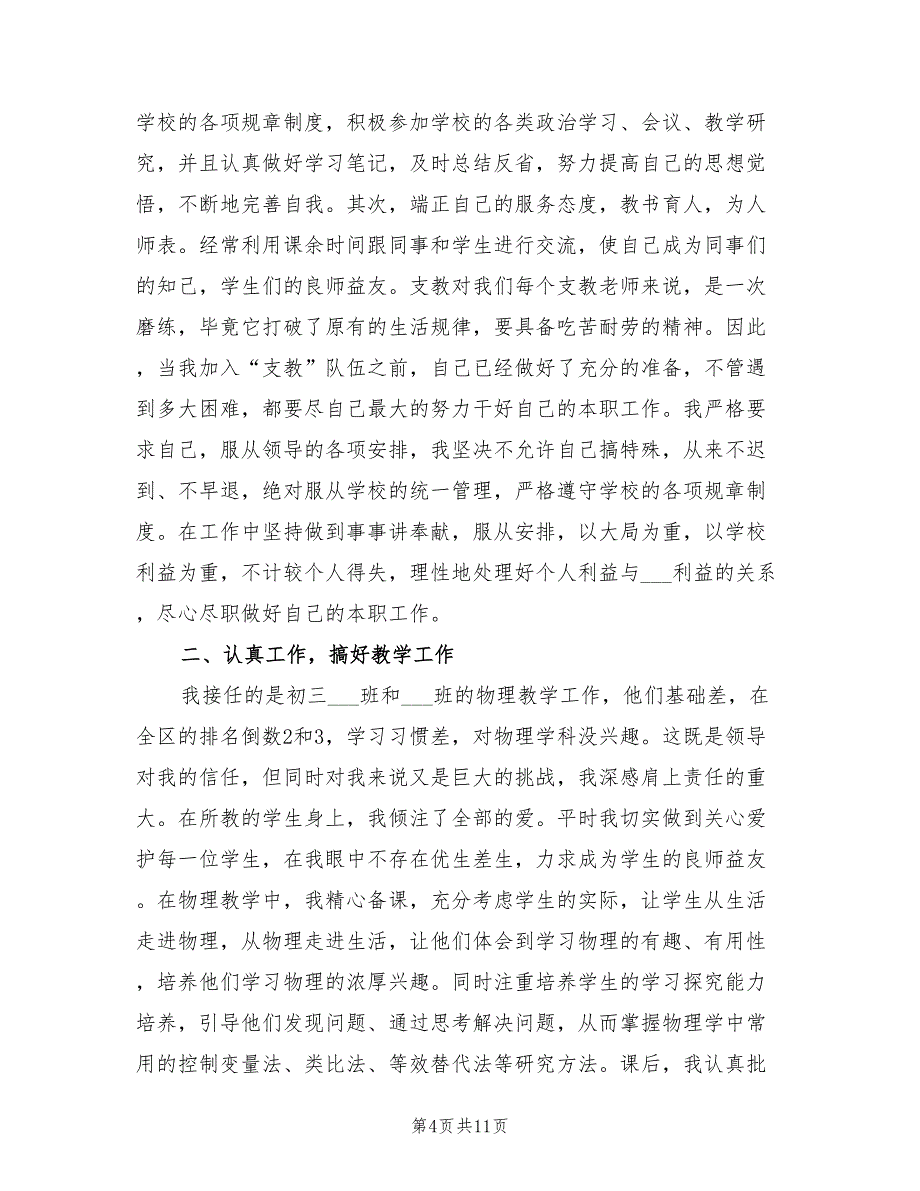 学校的各项规章制度，积极参加学校的各类政治学习、会议、教学研
究，并且认真做好学习笔记，及时总结反省，努力提高自己的思想觉
悟，不断地完善自我。其次，端正自己的服务态度，教书育人，为人
师表。经常利用课余时间跟同事和学生进行交流，使自己成为同事们
的知己，学生们的良师益友。支教对我们每个支教老师来说，是一次
磨练，毕竟它打破了原有的生活规律，要具备吃苦耐劳的精神。因此
，当我加入“支教”队伍之前，自己已经做好了充分的准备，不管遇
到多大困难，都要尽自己最大的努力干好自己的本职工作。我严格要
求自己，服从领导的各项安排，我坚决不允许自己搞特殊，从来不迟
到、不早退，绝对服从学校的统一管理，严格遵守学校的各项规章制
度。在工作中坚持做到事事讲奉献，服从安排，以大局为重，以学校
利益为重，不计较个人得失，理性地处理好个人利益与___利益的关系
，尽心尽职做好自己的本职工作。
二、认真工作，搞好教学工作
我接任的是初三___班和___班的物理教学工作，他们基础差，在
全区的排名倒数2和3，学习习惯差，对物理学科没兴趣。这既是领导
对我的信任，但同时对我来说又是巨大的挑战，我深感肩上责任的重
大。在所教的学生身上，我倾注了全部的爱。平时我切实做到关心爱
护每一位学生，在我眼中不存在优生差生，力求成为学生的良师益友
。在物理教学中，我精心备课，充分考虑学生的实际，让学生从生活
走进物理，从物理走进生活，让他们体会到学习物理的有趣、有用性
，培养他们学习物理的浓厚兴趣。同时注重培养学生的学习探究能力
培养，引导他们发现问题、通过思考解决问题，从而掌握物理学中常
用的控制变量法、类比法、等效替代法等研究方法。课后，我认真批
第4页共11页